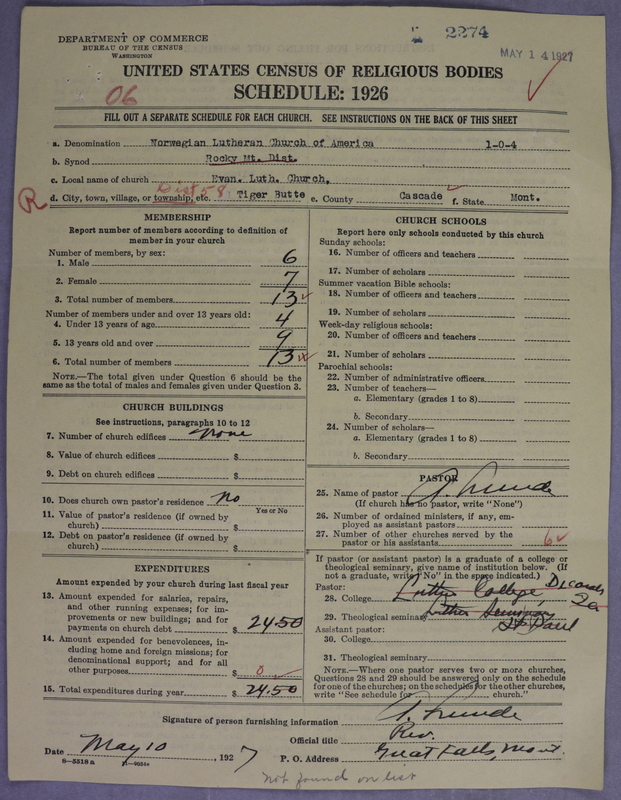 2274
MAY 14 1927
DEPARTMENT OF COMMERCE
BUREAU OF THE CENSUS
WASHINGTON
UNITED STATES CENSUS OF RELIGIOUS BODIES
SCHEDULE: 1926
06
FILL OUT A SEPARATE SCHEDULE FOR EACH CHURCH. SEE INSTRUCTIONS ON THE BACK OF THIS SHEET
a. Denomination Norwegian Lutheran Church of America 1-0-4
b. Synod Rocky Mt. Dist.
c. Local name of church Evan. Luth. Church,
Dist 58
R d. City, town, village, or township, etc. Tiger Butte e. County Cascade f. State Mont.
MEMBERSHIP
Report number of members according to definition of
member in your church
Number of members, by sex:
1. Male 6
2. Female 7
3. Total number of members 13
Number of members under and over 13 years old:
4. Under 13 years of age 4
5. 13 years old and over 9
6. Total number of members 13
NOTE.—The total given under Question 6 should be the
same as the total of males and females given under Question 3.
CHURCH BUILDINGS
See instructions, paragraphs 10 to 12
7. Number of church edifices None
8. Value of church edifices $
9. Debt on church edifices $
10. Does church own pastor's residence No
Yes or No
11. Value of pastor's residence (if owned by
church) $
12. Debt on pastor's residence (if owned by
church) $
EXPENDITURES
Amount expended by your church during last fiscal year
13. Amount expended for salaries, repairs,
and other running expenses; for im-
provements or new buildings; and for
payments on church debt $ 24.50
14. Amount expended for benevolences, in-
cluding home and foreign missions; for
denominational support; and for all
other purposes. $ 0
15. Total expenditures during year $ 24.50
CHURCH SCHOOLS
Report here only schools conducted by this church
Sunday schools:
16. Number of officers and teachers
17. Number of scholars
Summer vacation Bible schools:
18. Number of officers and teachers
19. Number of scholars
Week-day religious schools:
20. Number of officers and teachers
21. Number of scholars
Parochial schools:
22. Number of administrative officers
23. Number of teachers—
a. Elementary (grades 1 to 8)
b. Secondary
24. Number of scholars—
a. Elementary (grades 1 to 8)
b. Secondary
PASTOR
25. Name of pastor
(If church has no pastor, write "None")
26. Number of ordained ministers, if any, em-
ployed as assistant pastors
27. Number of other churches served by the
pastor or his assistants 6
If pastor (or assistant pastor) is a graduate of a college or
theological seminary, give name of institution below. (If
not a graduate, write "No" in the space indicated.)
Pastor:
28. College Luther College Decorah Ia
29. Theological seminary Luther Seminary
St Paul
Assistant pastor:
30. College
31. Theological seminary
NOTE.—Where one pastor serves two or more churches,
Questions 28 and 29 should be answered only on the schedule
for one of the churches; on the schedules for the other churches,
write "See schedule for church."
Signature of person furnishing information
Official title Rev.
Date May 10, 1927 P. O. Address Great Falls, Mont.
8-5518 a
not found on list